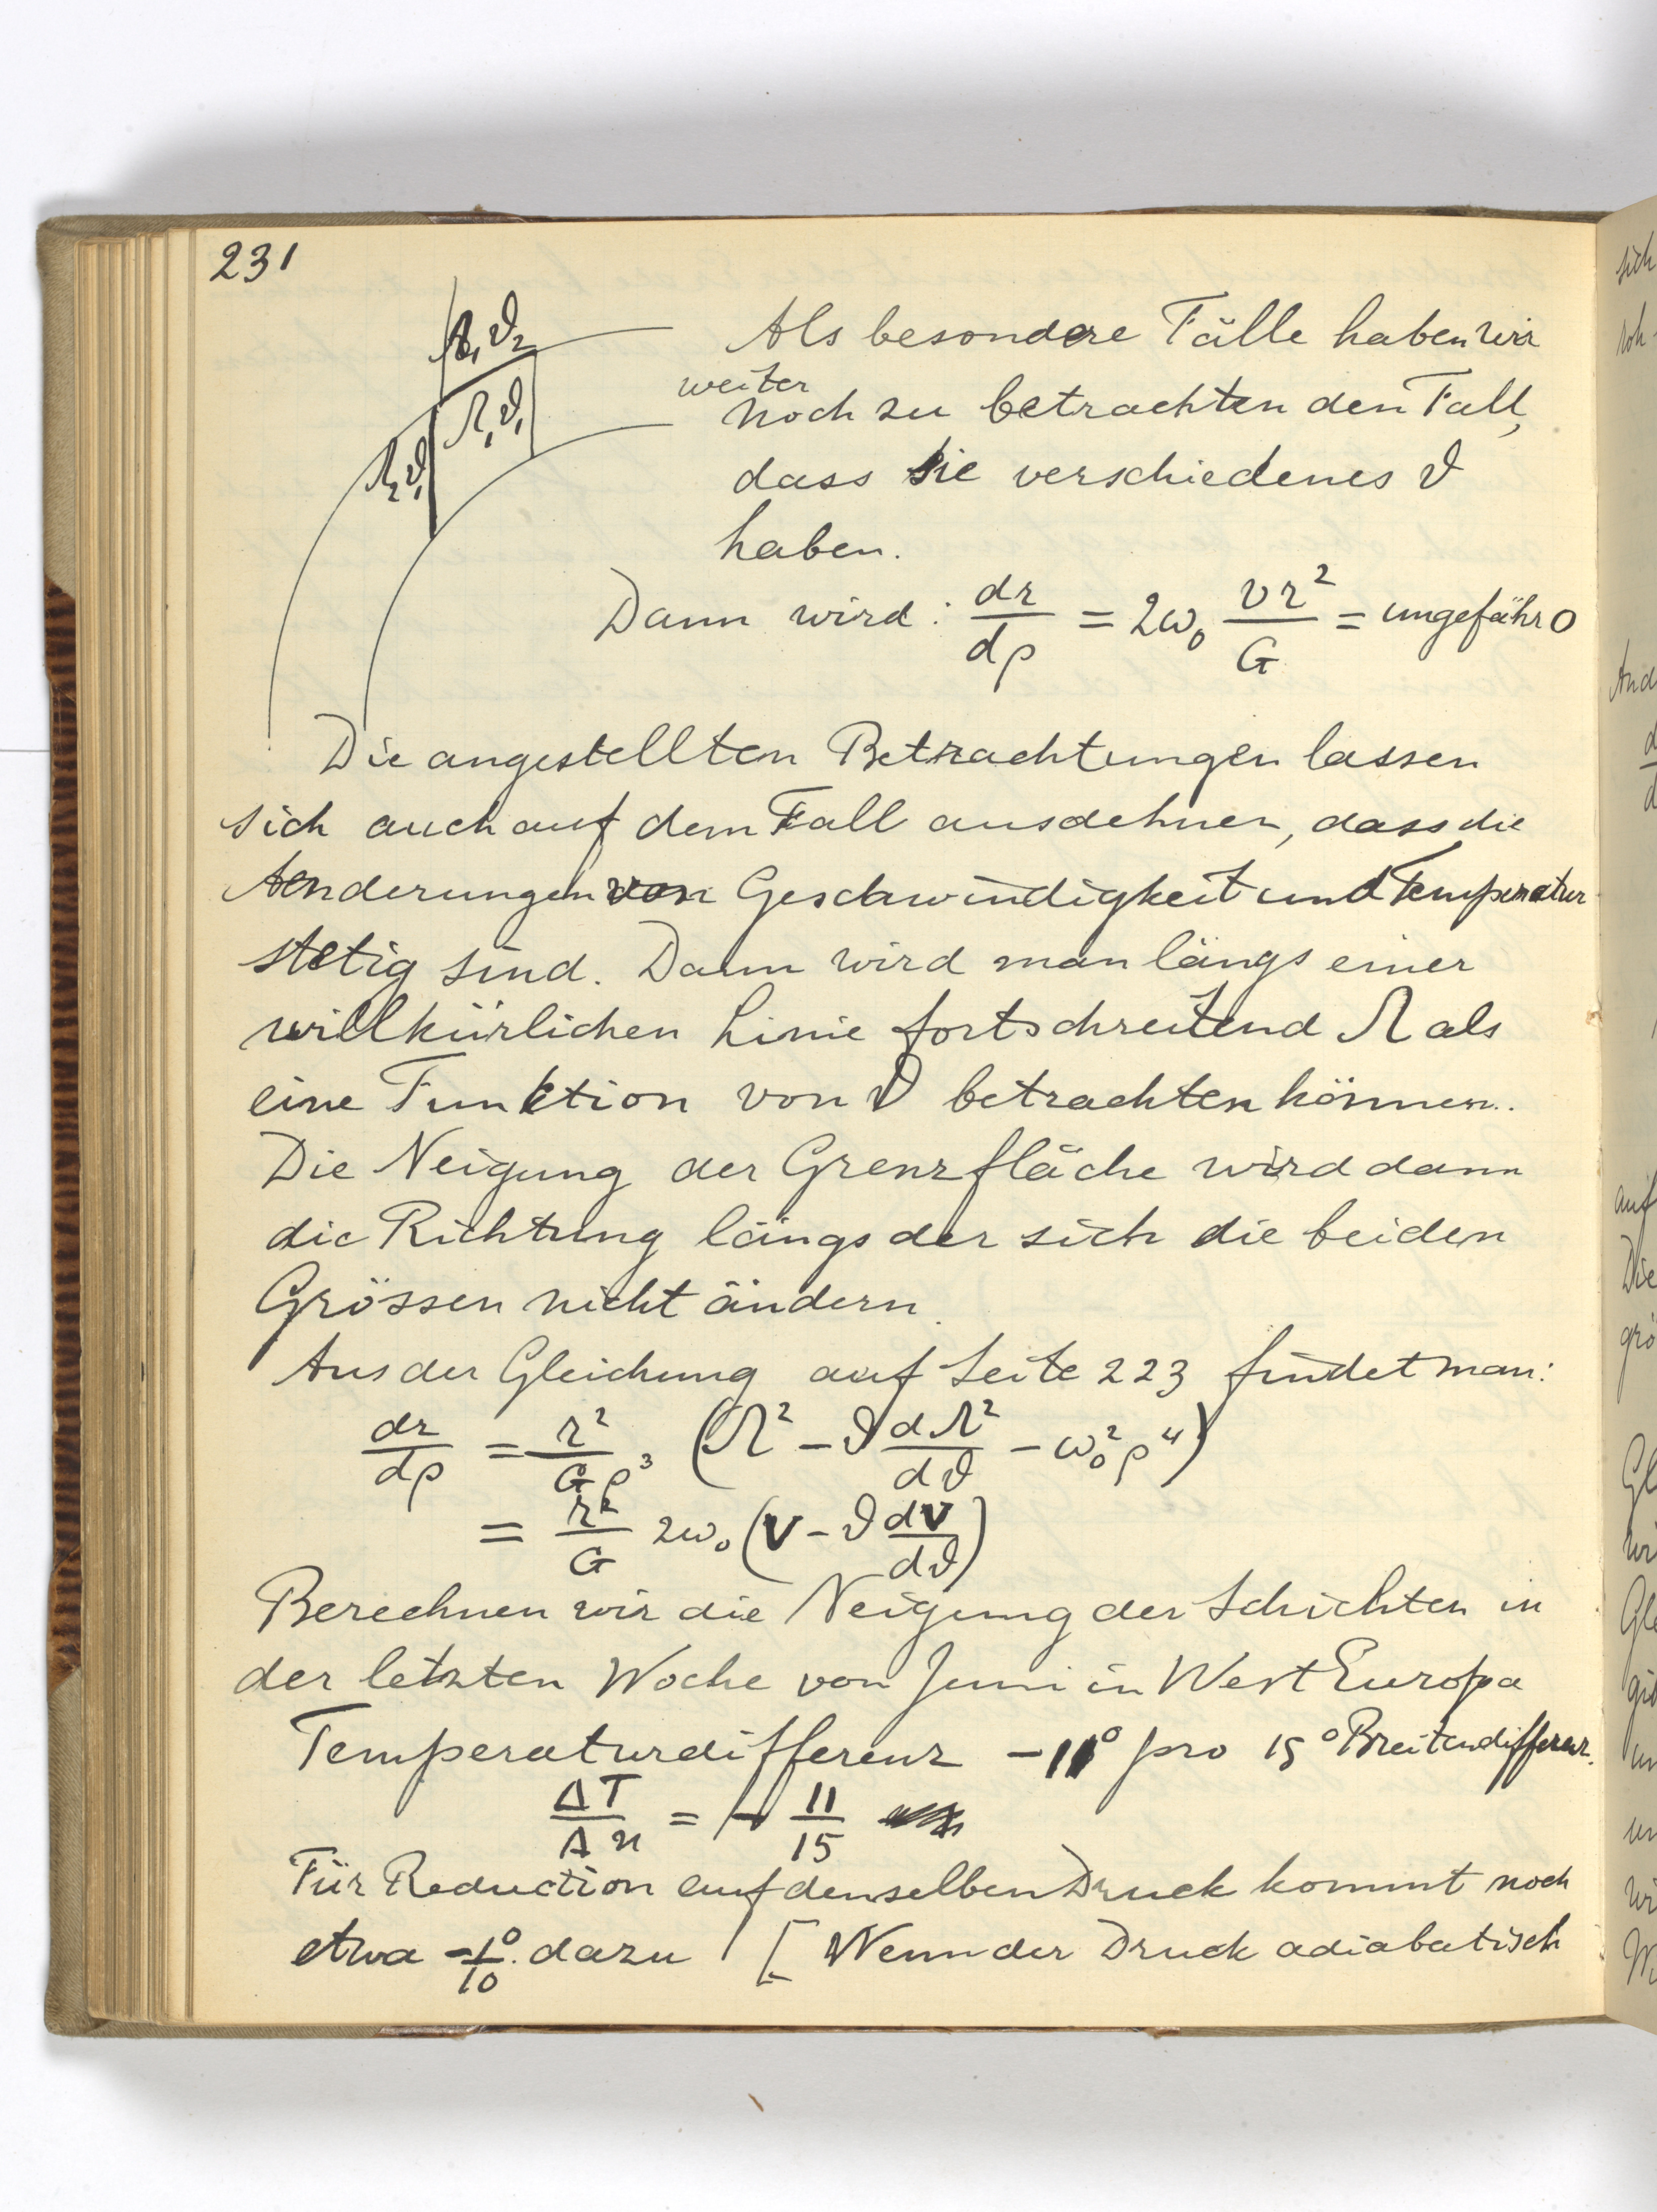 231
Ω₁ϑ₂
Ω₁ϑ₁
Ω₂ϑ₁
Als besondere Fälle haben wir
weiter
noch zu betrachten den Fall,
dass sie verschiedenes ϑ
haben.
Dann wird: dr/dρ = 2ω₀ vr²/G = ungefähr 0
Die angestellten Betrachtungen lassen
sich auch auf dem Fall ausdehnen, dass die
Aenderungen von Geschwindigkeit und Temperatur
stetig sind. Dann wird man längs einer
willkürlichen Linie fortschreitend Ω als
eine Funktion von ϑ betrachten können.
Die Neigung der Grenzfläche wird dann
die Richtung längs der sich die beiden
Grössen nicht ändern.
Aus der Gleichung auf Seite 223 findet man:
dr/dρ = r²/Gρ³ (Ω² − ϑ dΩ²/dϑ − ω₀²ρ⁴)
= r²/G 2ω₀ (v − ϑ dv/dϑ)
Berechnen wir die Neigung der Schichten in
der letzten Woche von Juni in West Europa
Temperaturdifferenz −11° pro 15° Breitendifferenz.
ΔT/Δn = − 11/15
Für Reduction auf denselben Druck kommt noch
etwa −1/10° dazu [Wenn der Druck adiabatisch